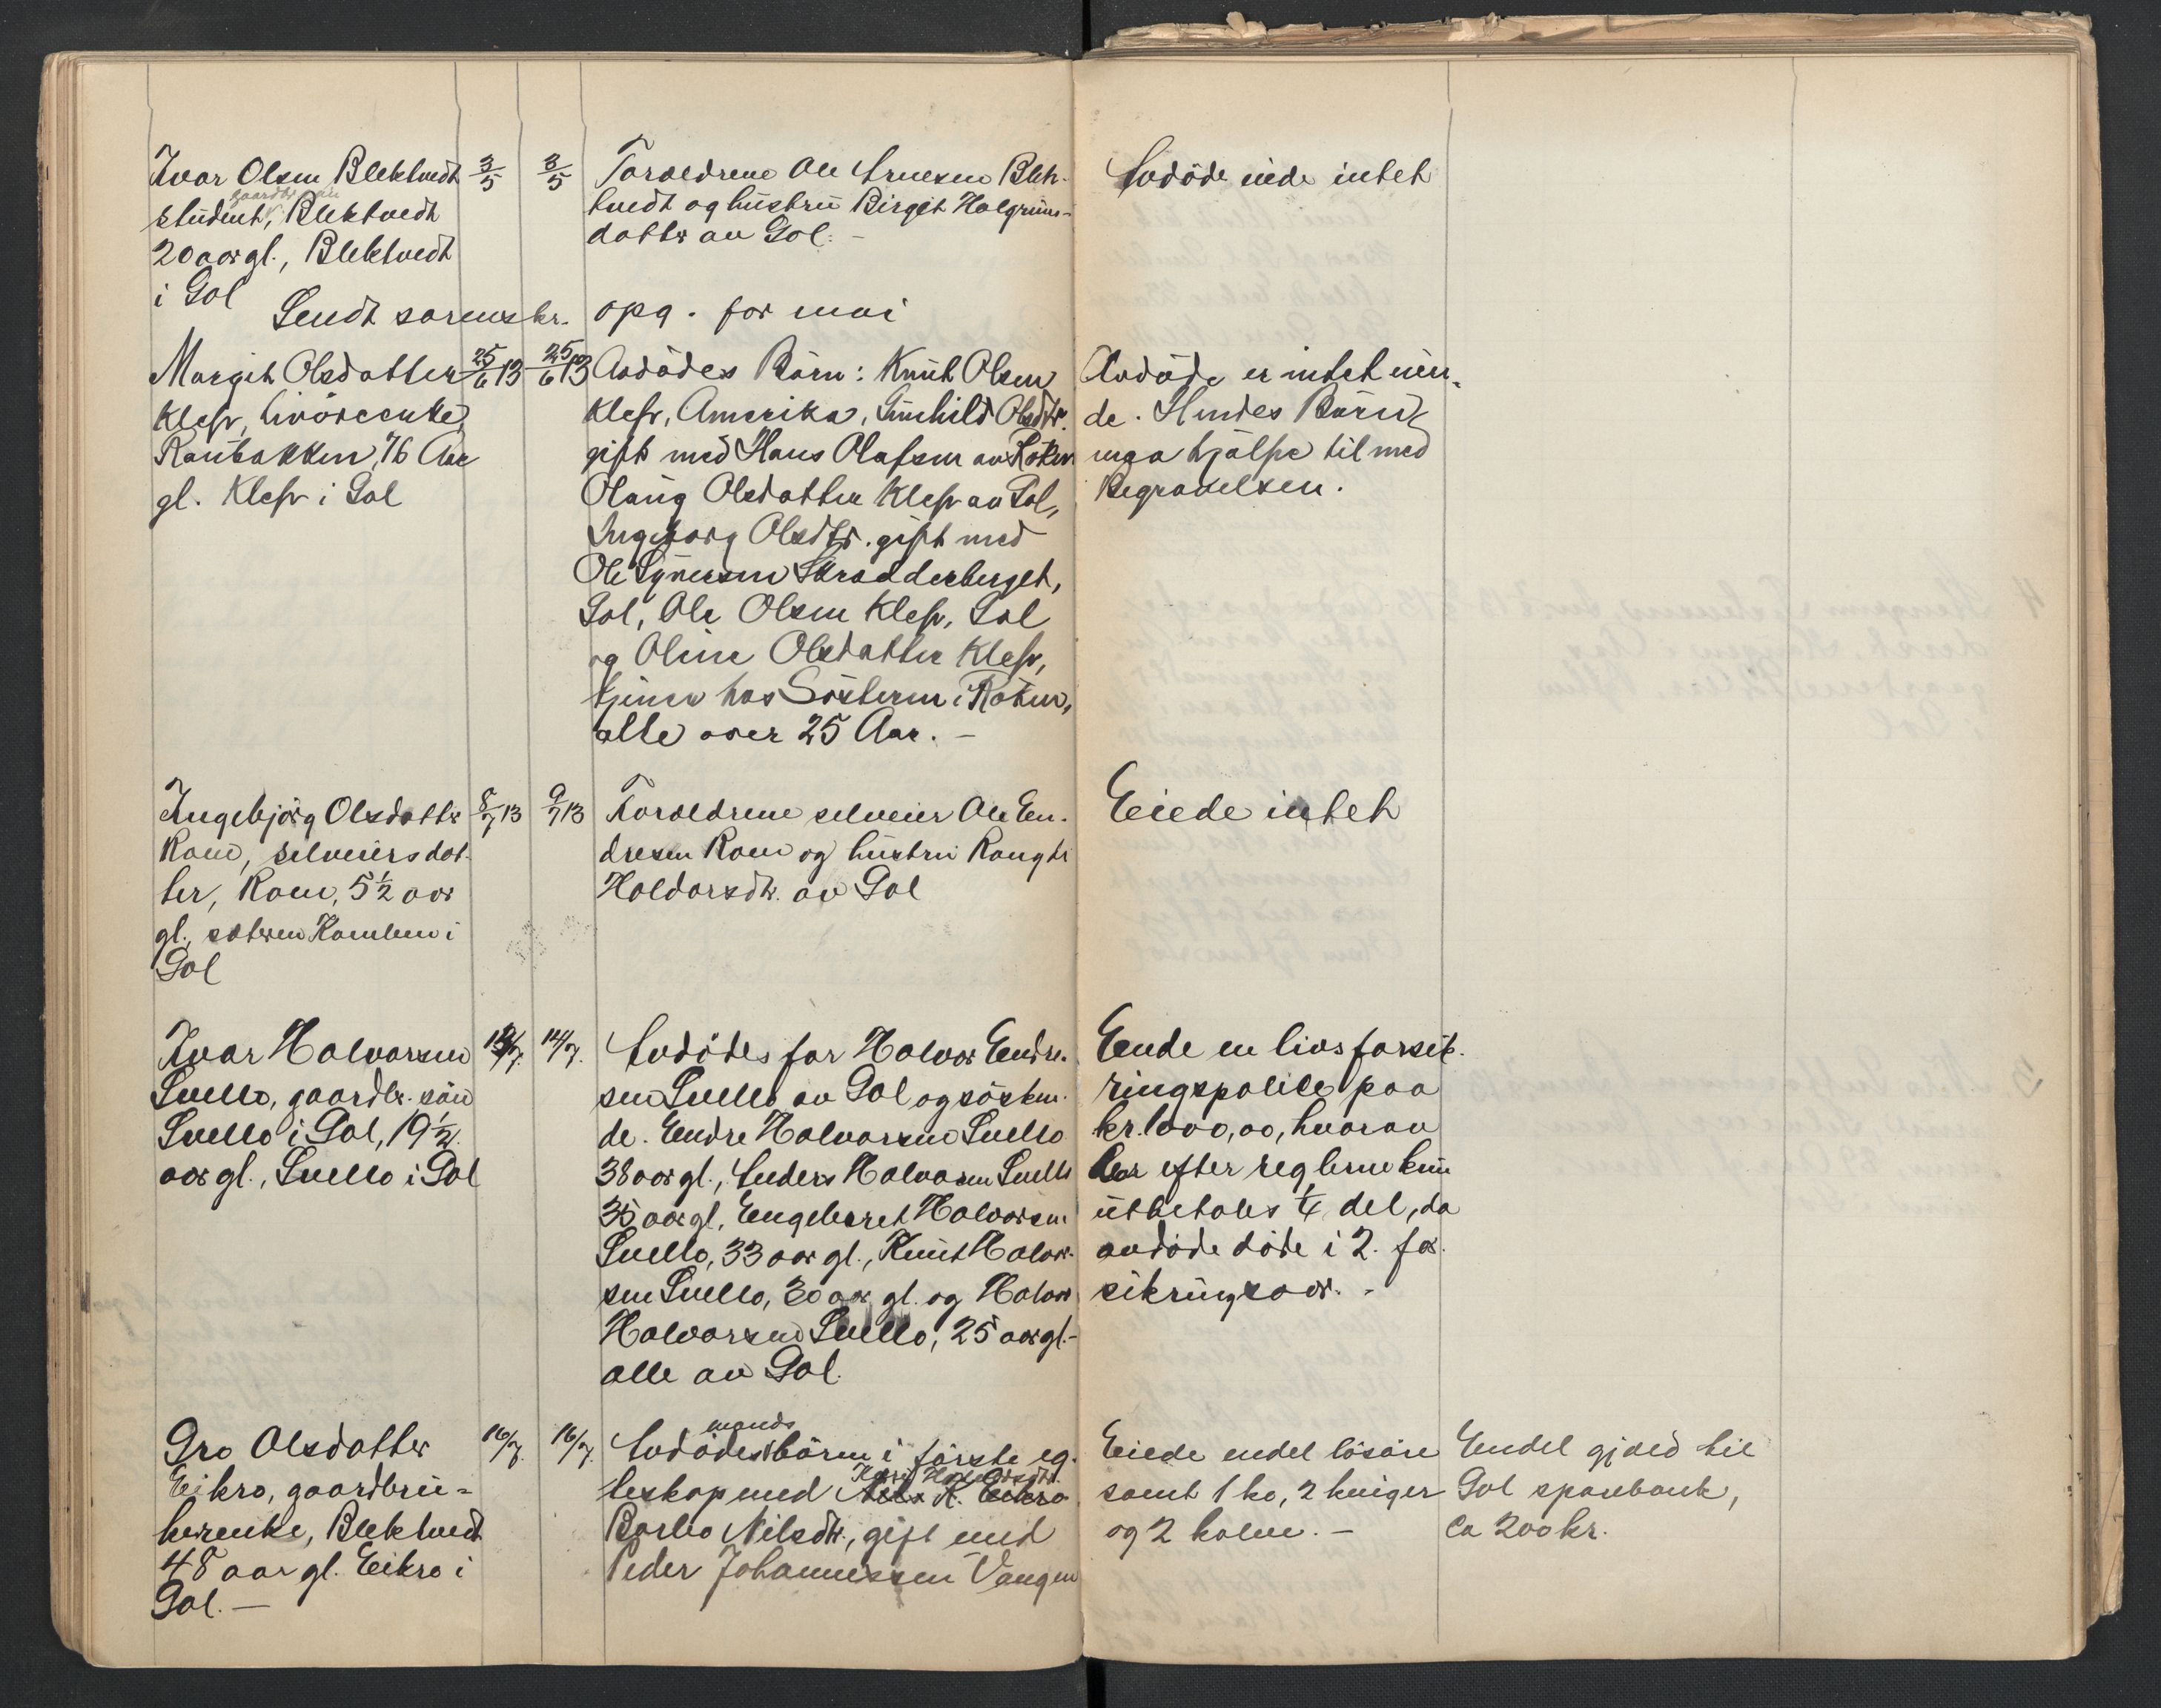 Ivar Olsen Blektvedt
gaardbr. søn
student, Blektvedt
20 aar gl., Blektvedt
i Gol
3/5
3/5
Foræeldrene Ole Arnesen Blek-
tvedt og hustru Birgit Holgrims-
datter av Gol. -
Avdöde eiede intet
Sendt sorenskr. opg. for mai
Margit Olsdatter
Klepr,
Raubakken, 76 Aar
gl. Klepr i Gol
25/6 13
25/6 13
Avdödes Börn: Knut Olsen
Klepr, Amerika, Gunhild Olsdtr.
gift med Hans Olafsen av Röken
Olaug Olsdatter Klepr av Gol,
Ingeborg Olsdtr. gift med
Ole Syversen Skradderberget,
Gol, Ole Olsen Klepr, Gol
og Oline Olsdatter Klepr,
tjener hos Sösteren i Röken,
alle over 25 Aar. -
Avdöde er intet eien-
de. Hendes Börn
maa hjälpe til med
Begravelsen.
Ingebjörg Olsdatter
Rom, selveiersdat-
ter, Rom, 5½ aar
gl., sæteren Kamben i
Gol
8/7 13
9/7 13
Forældrene selveier Ole En-
dresen Rom og hustru Rangdi
Haldorsdtr. av Gol
Eiede intet
Ivar Halvorsen
Svello, gaardbr. sön
Svello i Gol, 19½
aar gl., Svello i Gol
14/7.
Avdödes far Halvor Endre-
sen Svello av Gol og sösken-
de. Endre Halvorsen Svello
38 aar gl., Anders Halvorsen Svello
35 aar gl, Engebret Halvorsen
Svello, 33 aar gl., Knut Halvor-
sen Svello, 30 aar gl. og Halvor
Halvorsen Svello, 25 aar gl.-
alle av Gol.
Eiede en livsforsik-
ringspolice paa
kr. 1000,00, hvorav
der efter reglerne kun
utbetales ¼ del, da
avdöde döde i 2. for-
sikringsaar. -
Gro Olsdatter
Eikro, gaardbru-
kerenke, Blektvedt
48 aar gl. Eikro i
Gol. -
16/7.
16/7.
mands
Avdödes börn i förste eg-
teskap med K. Eikro
Barbo Nilsdtr., gift med
Peder Johannessen Vangen
Eiede endel lösöre
samt 1 ko, 2 kviger
og 2 kalve. -
Endel gjæld til
Gol sparebank,
ca 200 kr.